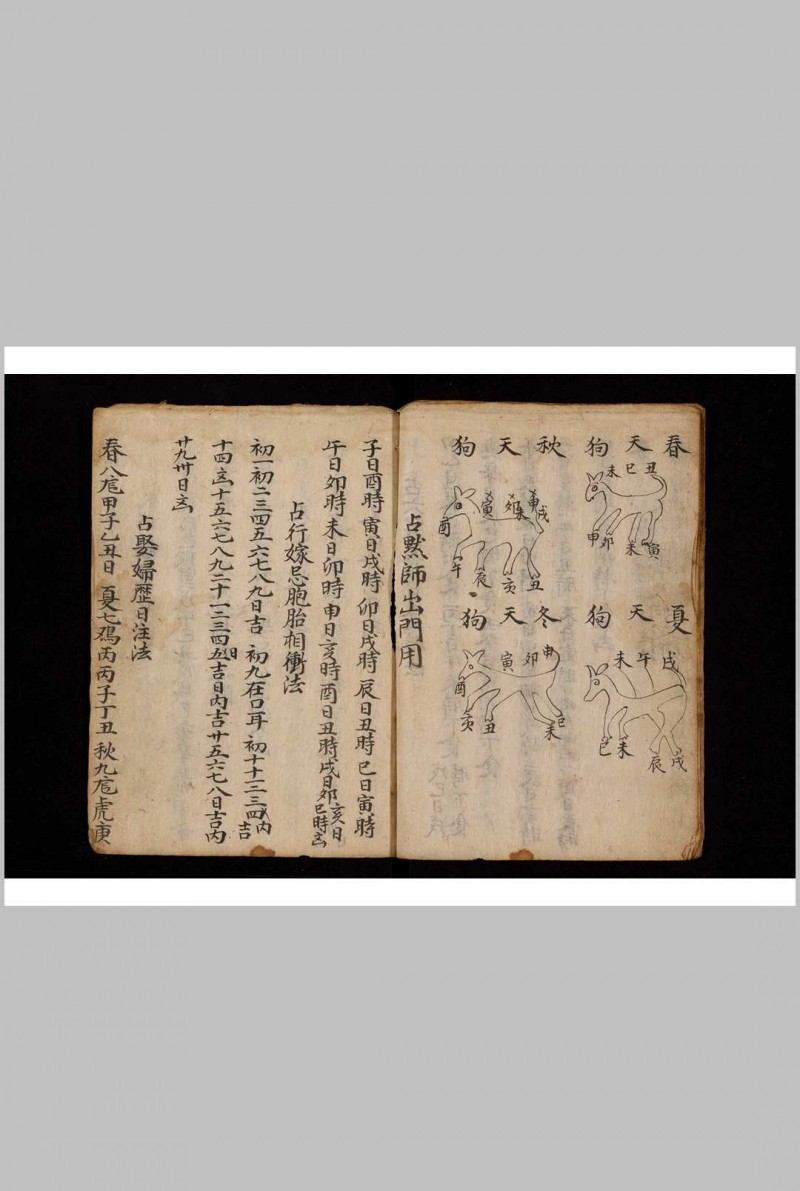 春天狗
丑
巳
未
申
卯
未
寅
夏天狗
戌
午
未
巳
未
辰
戌
秋天狗
戌
未
寅
酉
午
辰
亥
丑
冬天狗
申
卯
寅
酉
亥
丑
未
巳
占黙師出門用
子日酉時 寅日戌時 卯日戌時 辰日丑時 巳日寅時
午日卯時 未日卯時 申日亥時 酉日丑時 戌日卯 亥日巳時
占行嫁忌胞胎相衝法
初一初二三四五六七八九日吉 初九在口耳 初十十二三四内吉
十四 十五六七八九二十一二三四五日吉日内吉廿五六七八日吉内
廿九卅日
占娶婦歷日注法
春八 甲子乙丑日 夏七 丙丙子丁丑 秋九 虎庚